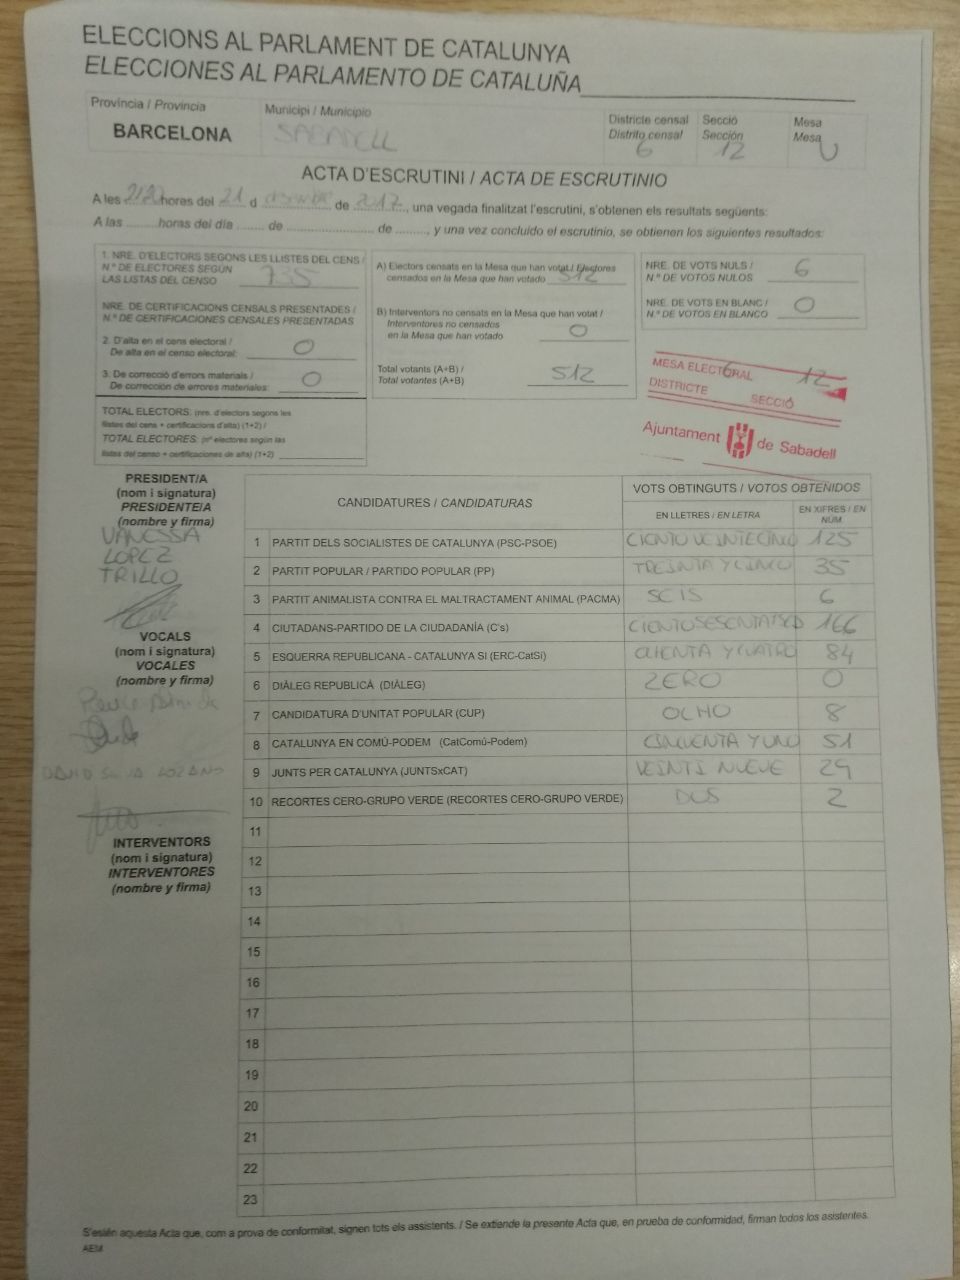 ELECCIONS AL PARLAMENT DE CATALUNYA
ELECCIONES AL PARLAMENTO DE CATALUÑA
Província / Provincia
BARCELONA
Municipi / Municipio
SABADELL
Districte censal
Distrito censal
6
Secció
Sección
12
Mesa
Mesa
U
ACTA D'ESCRUTINI / ACTA DE ESCRUTINIO
A les 21'20 hores del 21 d desembre de 2017, una vegada finalitzat l'escrutini, s'obtenen els resultats següents:
A las ........ horas del día ........ de ........................ de ........, y una vez concluido el escrutinio, se obtienen los siguientes resultados:
1. NRE. D'ELECTORS SEGONS LES LLISTES DEL CENS /
N.º DE ELECTORES SEGÚN
LAS LISTAS DEL CENSO 735
NRE. DE CERTIFICACIONS CENSALS PRESENTADES /
N.º DE CERTIFICACIONES CENSALES PRESENTADAS
2. D'alta en el cens electoral /
De alta en el censo electoral: 0
3. De correcció d'errors materials /
De corrección de errores materiales: 0
TOTAL ELECTORS: (nre. d'electors segons les
llistes del cens + certificacions d'alta) (1+2) /
TOTAL ELECTORES: (nº electores según las
listas del censo + certificaciones de alta) (1+2)
A) Electors censats en la Mesa que han votat / Electores
censados en la Mesa que han votado 512
B) Interventors no censats en la Mesa que han votat /
Interventores no censados
en la Mesa que han votado 0
Total votants (A+B) /
Total votantes (A+B) 512
NRE. DE VOTS NULS /
N.º DE VOTOS NULOS 6
NRE. DE VOTS EN BLANC /
N.º DE VOTOS EN BLANCO 0
MESA ELECTORAL
DISTRICTE 6 SECCIÓ 12
Ajuntament de Sabadell
PRESIDENT/A
(nom i signatura)
PRESIDENTE/A
(nombre y firma)
VANESSA
LOPEZ
TRILLO
VOCALS
(nom i signatura)
VOCALES
(nombre y firma)
DAVID LOZANO
INTERVENTORS
(nom i signatura)
INTERVENTORES
(nombre y firma)
CANDIDATURES / CANDIDATURAS
VOTS OBTINGUTS / VOTOS OBTENIDOS
EN LLETRES / EN LETRA
EN XIFRES / EN NÚM.
1 PARTIT DELS SOCIALISTES DE CATALUNYA (PSC-PSOE) CIENTO VEINTECINCO 125
2 PARTIT POPULAR / PARTIDO POPULAR (PP) TREINTA Y CINCO 35
3 PARTIT ANIMALISTA CONTRA EL MALTRACTAMENT ANIMAL (PACMA) SEIS 6
4 CIUTADANS-PARTIDO DE LA CIUDADANÍA (C's) 166
5 ESQUERRA REPUBLICANA - CATALUNYA SÍ (ERC-CatSí) Y CUATRO 84
6 DIÀLEG REPUBLICÀ (DIÀLEG) ZERO 0
7 CANDIDATURA D'UNITAT POPULAR (CUP) OCHO 8
8 CATALUNYA EN COMÚ-PODEM (CatComú-Podem) CINCUENTA Y UNO 51
9 JUNTS PER CATALUNYA (JUNTSxCAT) VEINTI NUEVE 29
10 RECORTES CERO-GRUPO VERDE (RECORTES CERO-GRUPO VERDE) DOS 2
11
12
13
14
15
16
17
18
19
20
21
22
23
S'estén aquesta Acta que, com a prova de conformitat, signen tots els assistents. / Se extiende la presente Acta que, en prueba de conformidad, firman todos los asistentes.
AEM